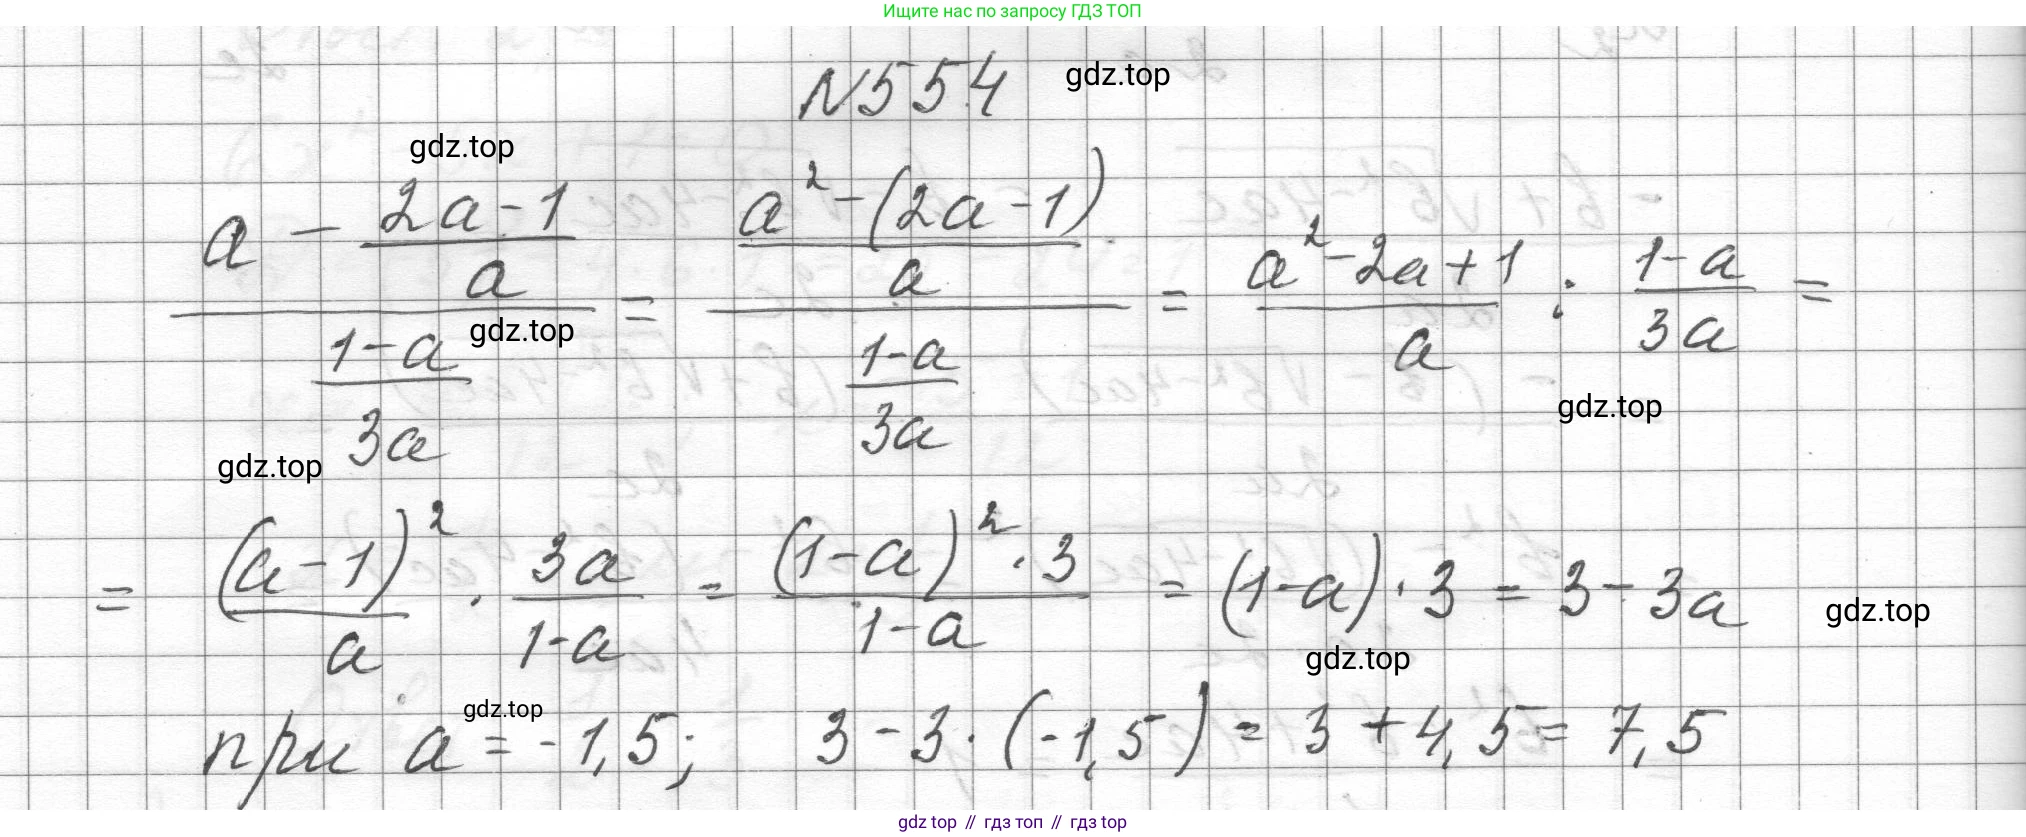 Ищите нас по запросу ГДЗ ТОП
N554 gdz.top
gdz.top
(a - (2a-1)/a) / ((1-a)/(3a)) = ((a² - (2a-1))/a) / ((1-a)/(3a)) = (a² - 2a + 1)/a : (1-a)/(3a) =
gdz.top
gdz.top
gdz.top
= (a-1)²/a · 3a/(1-a) = ((1-a)² · 3)/(1-a) = (1-a) · 3 = 3 - 3a gdz.top
gdz.top
gdz.top
при a = -1,5; 3 - 3 · (-1,5) = 3 + 4,5 = 7,5
gdz top // гдз топ // gdz top